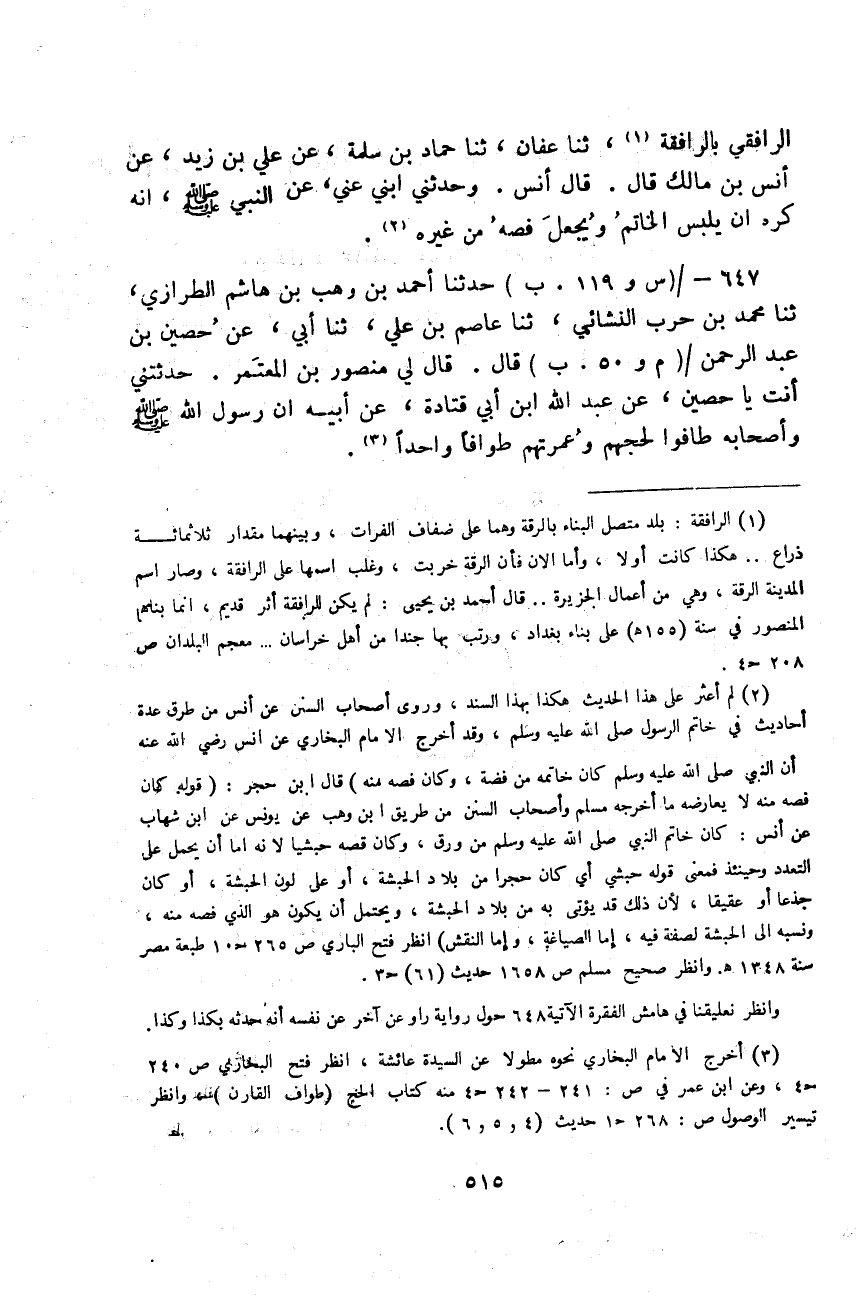 الرافقي بالرافقة (١) ، ثنا عفان ، ثنا حماد بن سلمة ، عن علي بن زيد ، عن
أنس بن مالك قال . قال أنس . وحدثني ابني عني ، عن النبي ﷺ ، انه
كره ان يلبس الخاتمُ ويُجعلَ فصهُ من غيره (٢) .
٦٤٧ – /(س و ١١٩ . ب ) حدثنا أحمد بن وهب بن هاشم الطرازي ،
ثنا محمد بن حرب النشائي ، ثنا عاصم بن علي ، ثنا أبي ، عن حُصين بن
عبد الرحمن /( م و ٥٠ . ب ) قال . قال لي منصور بن المعتَمر . حدثتني
أنت يا حصين ، عن عبد الله ابن أبي قتادة ، عن أبيـه ان رسول الله ﷺ
وأصحابه طافوا لحجهم وعُمرتهم طوافاً واحداً (٣) .
(١) الرافقة : بلد متصل البناء بالرقة وهما على ضفاف الفرات ، وبينهما مقدار ثلاثمائـــة
ذراع .. هكذا كانت أولا ، وأما الان فأن الرقة خربت ، وغلب اسمها على الرافقة ، وصار اسم
المدينة الرقة ، وهي من أعمال الجزيرة .. قال أحمد بن يحيى : لم يكن للرافقة أثر قديم ، انما بناها
المنصور في سنة (١٥٥ه) على بناء بغداد ، ورتب بها جندا من أهل خراسان ... معجم البلدان ص
٢٠٨ ح٤ .
(٢) لم أعثر على هذا الحديث هكذا بهذا السند ، وروى أصحاب السنن عن أنس من طرق عدة
أحاديث في خاتم الرسول صلى الله عليه وسلم ، وقد أخرج الامام البخاري عن انس رضي الله عنه
أن النبي صلى الله عليه وسلم كان خاتمه من فضة ، وكان فصه منه ) قال ابن حجر : ( قوله كان
فصه منه لا يعارضه ما أخرجه مسلم وأصحاب السنن من طريق ابن وهب عن يونس عن ابن شهاب
عن أنس : كان خاتم النبي صلى الله عليه وسلم من ورق ، وكان فصه حبشيا لانه اما أن يحمل على
التعدد وحينئذ فمعنى قوله حبشي أي كان حجرا من بلاد الحبشة ، أو على لون الحبشة ، أو كان
جذعا أو عقيقا ، لأن ذلك قد يؤتى به من بلاد الحبشة ، ويحتمل أن يكون هو الذي فصه منه ،
ونسبه الى الحبشة لصفة فيه ، إما الصياغة ، وإما النقش) انظر فتح الباري ص ٢٦٥ ح١٠ طبعة مصر
سنة ١٣٤٨ ه. وانظر صحيح مسلم ص ١٦٥٨ حديث (٦١) ح٣ .
وانظر تعليقنا في هامش الفقرة الآتية ٦٤٨ حول رواية راو عن آخر عن نفسه أنه حدثه بكذا وكذا.
(٣) أخرج الأمام البخاري نحوه مطولا عن السيدة عائشة ، انظر فتح البخاري ص ٢٤٠
ح٤ ، وعن ابن عمر في ص : ٢٤١ – ٢٤٢ ح٤ منه كتاب الحج (طواف القارن ) وانظر
تيسير الوصول ص : ٢٦٨ ح١ حديث (٤ و ٥ و ٦ ).
٥١٥